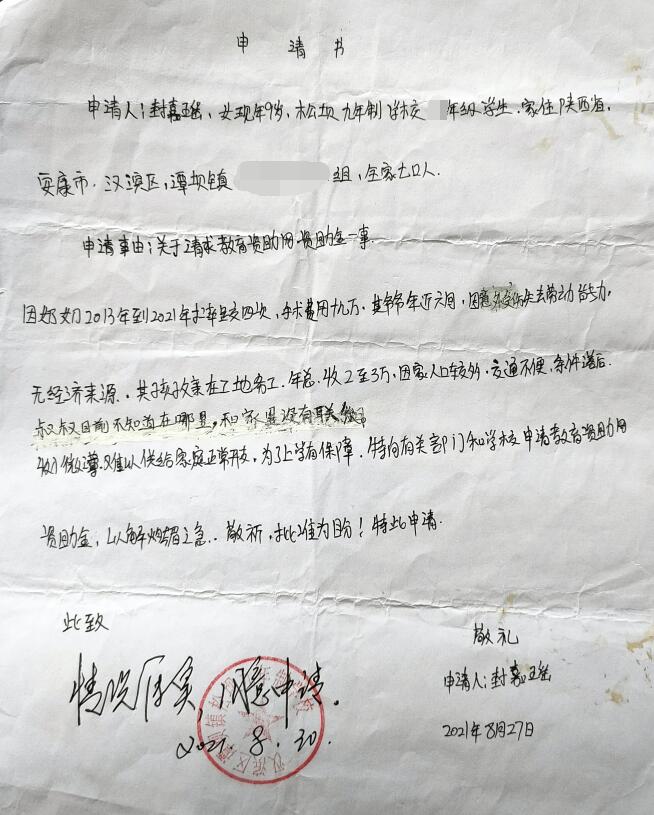 申请书
申请人:封嘉瑶,女现年9岁,松坝九年制学校 年级学生.家住陕西省,
安康市.汉滨区,谭坝镇 组,全家七口人.
申请事由:关于请求教育资助用资助金一事.
因奶奶2013年到2021年 四次,手术费用十九万,其爷爷年近六旬,因意外受伤失去劳动能力,
无经济来源.其 在工地务工.年总收2至3万,因家人口较多,交通不便,条件滞后.
叔叔目前不知道在哪里,和家里没有联系
收入微薄难以供给家庭正常开支,为了上学有保障.特向有关部门和学校申请教育资助用
资助金,以解燃眉之急..敬祈,批准为盼!特此申请.
此致
敬礼
申请人:封嘉瑶
2021年8月27日
情况属实,同意申请.
2021.8.30.